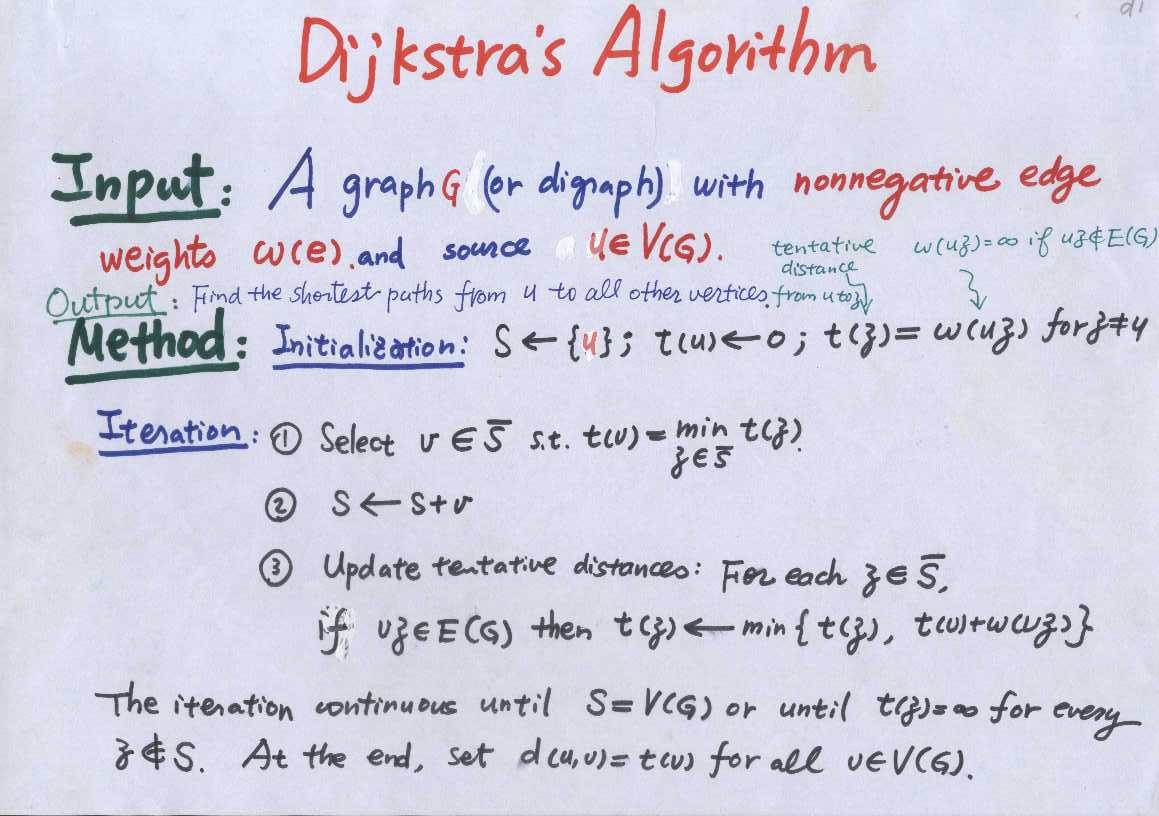 Dijkstra's Algorithm
Input: A graph G (or digraph) with nonnegative edge
weights w(e). and source u ∈ V(G).
tentative distance from u to z
w(uz)=∞ if uz∉E(G)
Output: Find the shortest paths from u to all other vertices.
Method: Initialization: S ← {u}; t(u) ← 0; t(z) = w(uz) for z≠u
Iteration: ① Select v ∈ S̅ s.t. t(v) = min t(z).
z∈S̅
② S ← S+v
③ Update tentative distances: For each z ∈ S̅,
if vz ∈ E(G) then t(z) ← min{ t(z), t(v)+w(vz)}
The iteration continuous until S = V(G) or until t(z)=∞ for every
z ∉ S. At the end, set d(u,v) = t(v) for all v ∈ V(G).